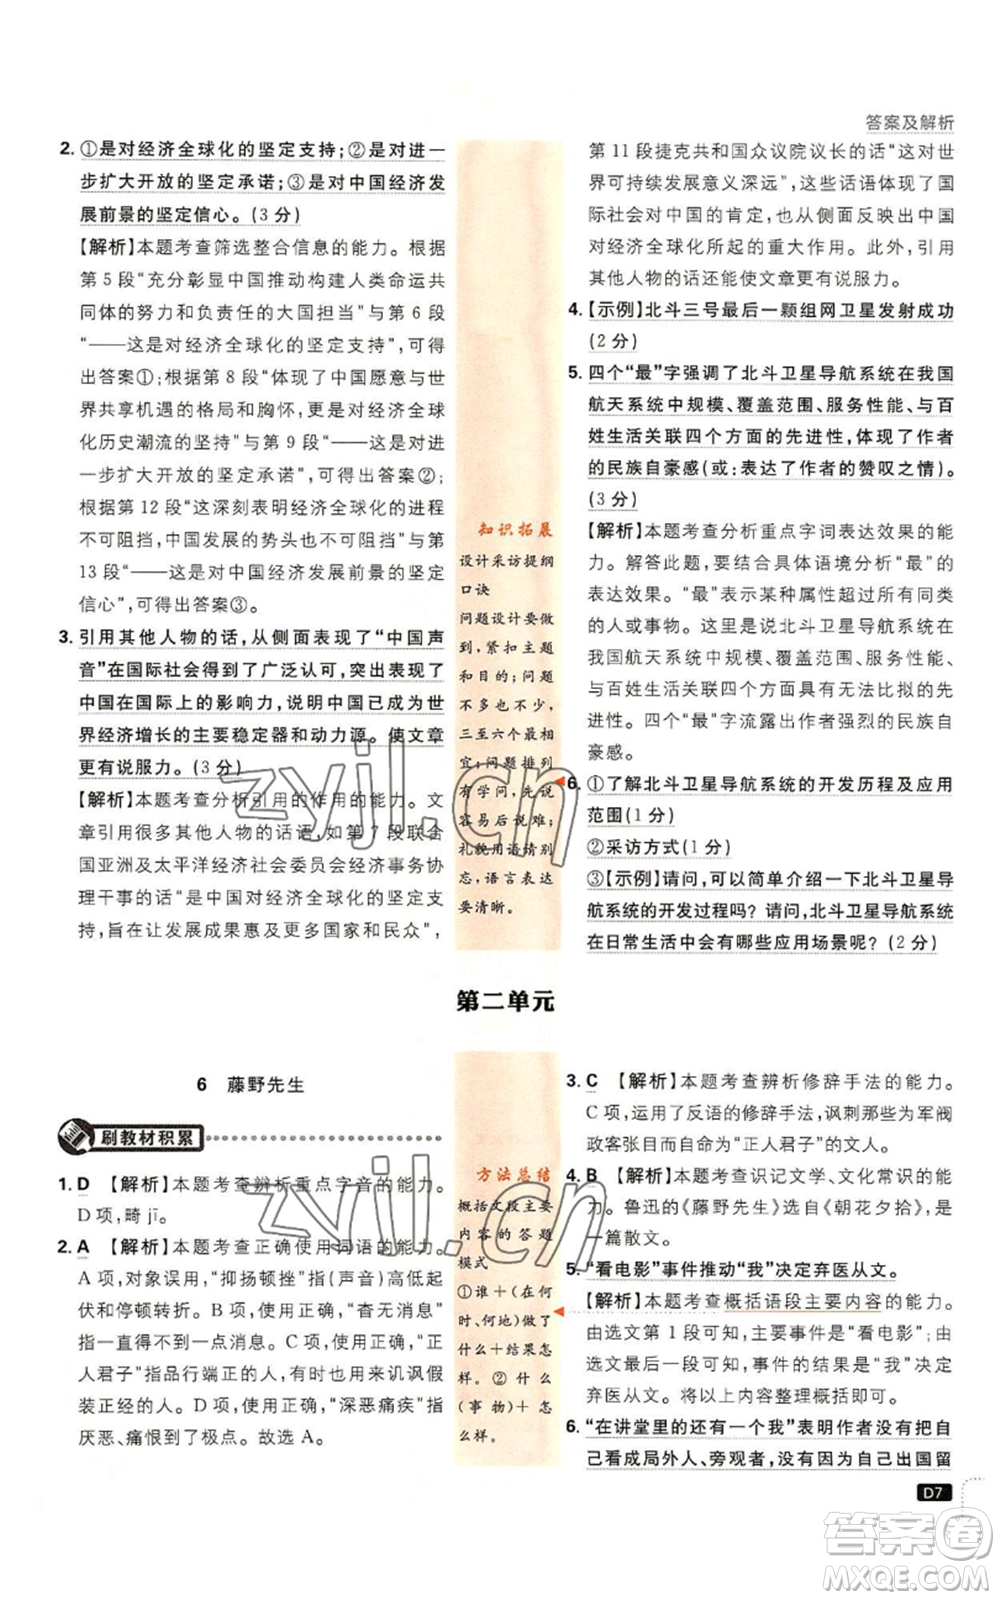 答案及解析
2. ①是对经济全球化的坚定支持;②是对进一
步扩大开放的坚定承诺;③是对中国经济发
展前景的坚定信心。(3 分)
【解析】本题考查筛选整合信息的能力。根据
第 5 段“充分彰显中国推动构建人类命运共
同体的努力和负责任的大国担当”与第 6 段
“——这是对经济全球化的坚定支持”,可得
出答案①;根据第 8 段“体现了中国愿意与世
界共享机遇的格局和胸怀,更是对经济全球
化历史潮流的坚持”与第 9 段“——这是对进
一步扩大开放的坚定承诺”,可得出答案②;
根据第 12 段“这深刻表明经济全球化的进程
不可阻挡,中国发展的势头也不可阻挡”与第
13 段“——这是对中国经济发展前景的坚定
信心”,可得出答案③。
3. 引用其他人物的话,从侧面表现了“中国声
音”在国际社会得到了广泛认可,突出表现了
中国在国际上的影响力,说明中国已成为世
界经济增长的主要稳定器和动力源。使文章
更有说服力。(3 分)
【解析】本题考查分析引用的作用的能力。文
章引用很多其他人物的话语,如第 7 段联合
国亚洲及太平洋经济社会委员会经济事务协
理干事的话“是中国对经济全球化的坚定支
持,旨在让发展成果惠及更多国家和民众”,
知识拓展
设计采访提纲
口诀
问题设计要做
到,紧扣主题
和目的;问题
不多也不少,
三至六个最相
宜;问题排列
有学问,先说
容易后说难;
礼貌用语请别
忘,语言表达
要清晰。
第 11 段捷克共和国众议院议长的话“这对世
界可持续发展意义深远”,这些话语体现了国
际社会对中国的肯定,也从侧面反映出中国
对经济全球化所起的重大作用。此外,引用
其他人物的话还能使文章更有说服力。
4. 【示例】北斗三号最后一颗组网卫星发射成功
(2 分)
5. 四个“最”字强调了北斗卫星导航系统在我国
航天系统中规模、覆盖范围、服务性能、与百
姓生活关联四个方面的先进性,体现了作者
的民族自豪感(或:表达了作者的赞叹之情)。
(3 分)
【解析】本题考查分析重点字词表达效果的能
力。解答此题,要结合具体语境分析“最”的
表达效果。“最”表示某种属性超过所有同类
的人或事物。这里是说北斗卫星导航系统在
我国航天系统中规模、覆盖范围、服务性能、
与百姓生活关联四个方面具有无法比拟的先
进性。四个“最”字流露出作者强烈的民族自
豪感。
6. ①了解北斗卫星导航系统的开发历程及应用
范围(1 分)
②采访方式(1 分)
③【示例】请问,可以简单介绍一下北斗卫星导
航系统的开发过程吗? 请问,北斗卫星导航系统
在日常生活中会有哪些应用场景呢? (2 分)
第二单元
6 藤野先生
刷教材积累
1. D 【解析】本题考查辨析重点字音的能力。
D 项,畸 jī。
2. A 【解析】本题考查正确使用词语的能力。
A 项,对象误用,“抑扬顿挫”指(声音)高低起
伏和停顿转折。B 项,使用正确,“杳无消息”
指一直得不到一点消息。C 项,使用正确,“正
人君子”指品行端正的人,也用来讥讽假装正
经的人。D 项,使用正确,“深恶痛疾”指
厌恶、痛恨到了极点。故选 A。
方法总结
概括文段主要
内容的答题
模式
①谁＋(在何
时、何地)做了
什么＋结果怎
样。② 什么
(事物)＋怎
么样。
3. C 【解析】本题考查辨析修辞手法的能力。
C 项,运用了反语的修辞手法,讽刺那些为军阀
政客张目而自命为“正人君子”的一批文人。
4. B 【解析】本题考查识记文学、文化常识的能
力。鲁迅的《藤野先生》选自《朝花夕拾》,是
一篇散文。
5. “看电影”事件推动“我”决定弃医从文。
【解析】本题考查概括语段主要内容的能力。
由选文第 1 段可知,主要事件是“看电影”;由
选文最后一段可知,事件的结果是“我”决定
弃医从文。将以上内容整理概括即可。
6. “在讲堂里的还有一个我”表明作者没有把自
己看成局外人、旁观者,没有因为自己出国留
D7
zyjl.cn
zyjl.cn
答案圈
MXQE.COM